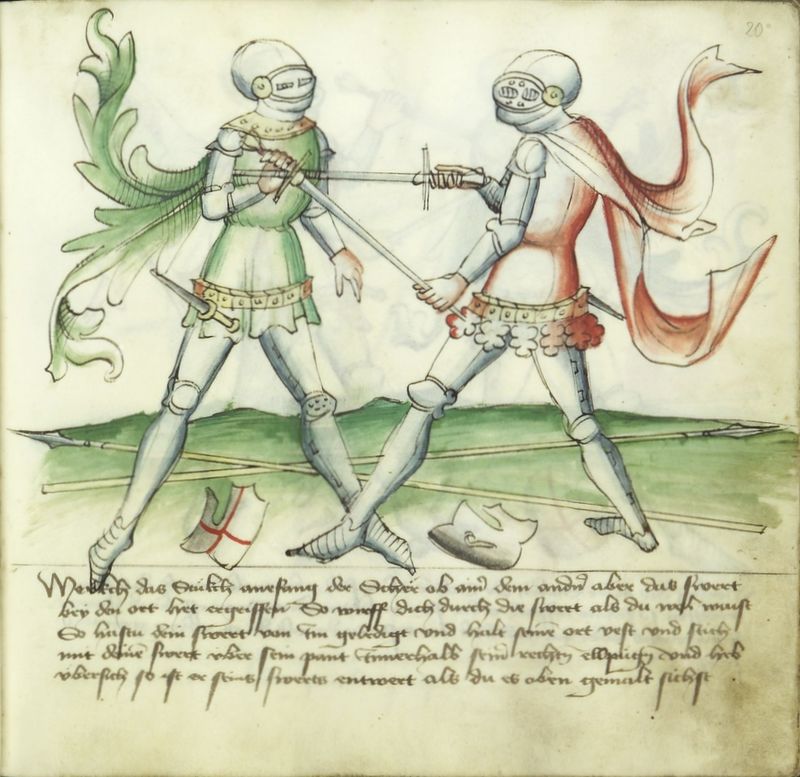 20
Merckh das Stückh anefang der Scher ob ainer dem andern aber das swert
bey den ort het ergriffen So wirff dich durch die swert als du wol waist
So hastu dein swert von im geledigt vnd halt seinen ort vest vnd stich
mit deinem swert vber sein pant Innerhalb seins rechten ellpugen vnd heb
vbersich so ist er seins swerts entwert als du es oben gemalt sichst